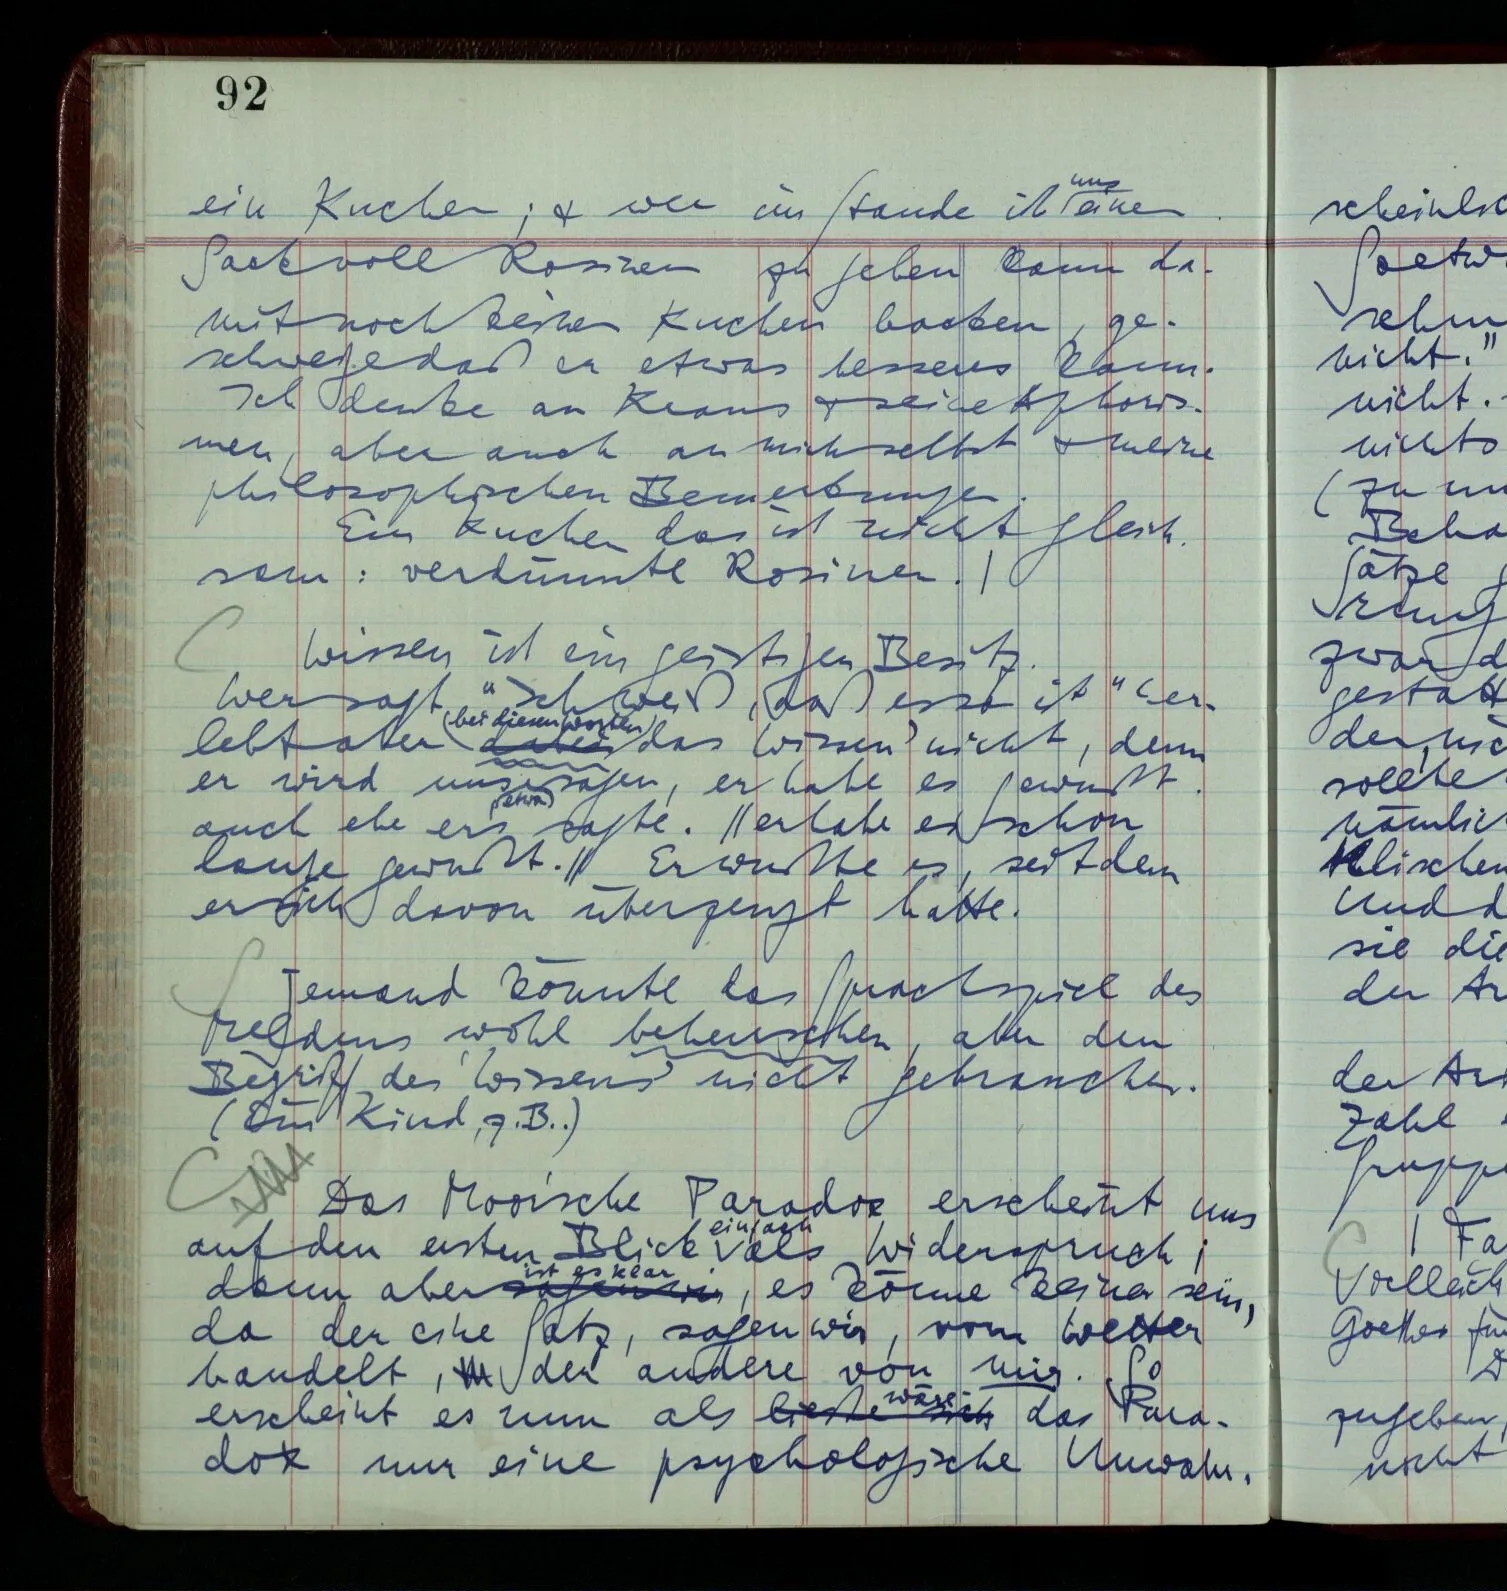 92
ein Kuchen; & wer im Stande ist uns einen
Sack voll Rosinen zu geben kann da-
mit noch keinen Kuchen backen, ge-
schweige daß er etwas besseres kann.
Ich denke an Kraus & seine Aphoris-
men, aber auch an mich selbst & meine
philosophischen Bemerkungen.
Ein Kuchen das ist nicht gleich-
sam: verdünnte Rosinen. |
Wissen ist ein geistiger Besitz.
Wer sagt "Ich weiß, daß es so ist" er-
(bei diesen Worten)
lebt aber dabei das Wissen nicht, denn
er wird uns sagen, er habe es gewußt
(etwa)
auch ehe er's sagte. // er habe es schon
lange gewußt. // Er wußte es, seitdem
er sich davon überzeugt hatte.
Jemand könnte das Sprachspiel des
Meldens wohl beherrschen, aber den
Begriff des Wissens nicht gebrauchen.
(Ein Kind, z.B..)
Das Moorsche Paradox erscheint uns
einfach
auf den ersten Blick als Widerspruch;
ist es klar
dann aber sagen wir, es könne keiner sein,
da der eine Satz, sagen wir, vom Wetter
handelt, der andere von mir. So
wäre
erscheint es nun als ließe sich das Para-
dox nur eine psychologische Unwahr-
scheinlich
sehen
nicht."
nicht.
nichts
(zu un
Beha
Sätze g
zwar d
gestatt
der, nic
sollte
nämlich
klischen
Und d
sie die
der Ar
der Ar
Zahl
Gruppe
| Fa
Vielleich
Goethes für
zugeben,
nicht